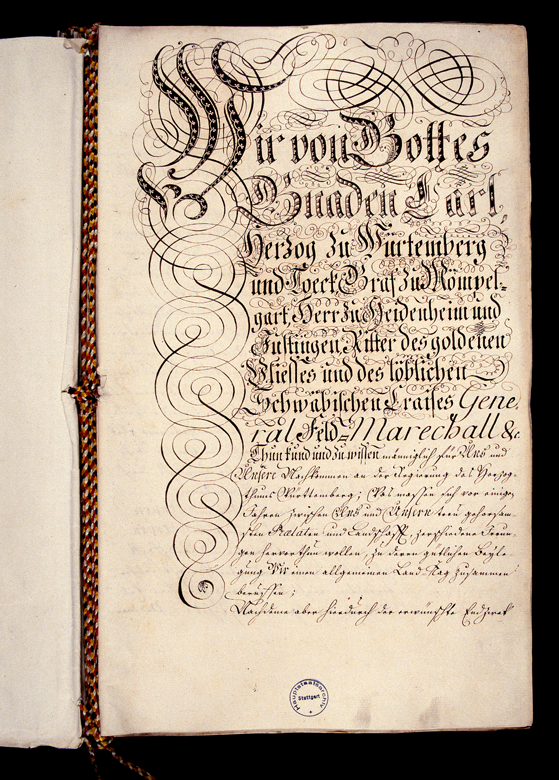 Wir von Gottes
Gnaden Carl,
Herzog zu Würtemberg
und Toeck, Graf zu Mömpel-
gart, Herr zu Heidenheim und
Justingen, Ritter des goldenen
Vliesses und des löblichen
Schwäbischen Craises Gene-
ral Feld-Marechall &c.
Thun kund und zu wissen männiglich für Uns und
Unsere Nachkommen an der Regierung des Herzog-
thums Württemberg; Als massen sich vor einigen
Jahren zwischen Uns und Unsern treu gehorsam-
sten Praelaten und Landschafft, verschiedene Irrun-
gen hervorthun wollen, zu deren gütlichen Beyle-
gung Wir einen allgemeinen Land-Tag zusammen
beruffen;
Nachdeme aber hierdurch der erwünschte Endzwek
Hauptstaatsarchiv
Stuttgart